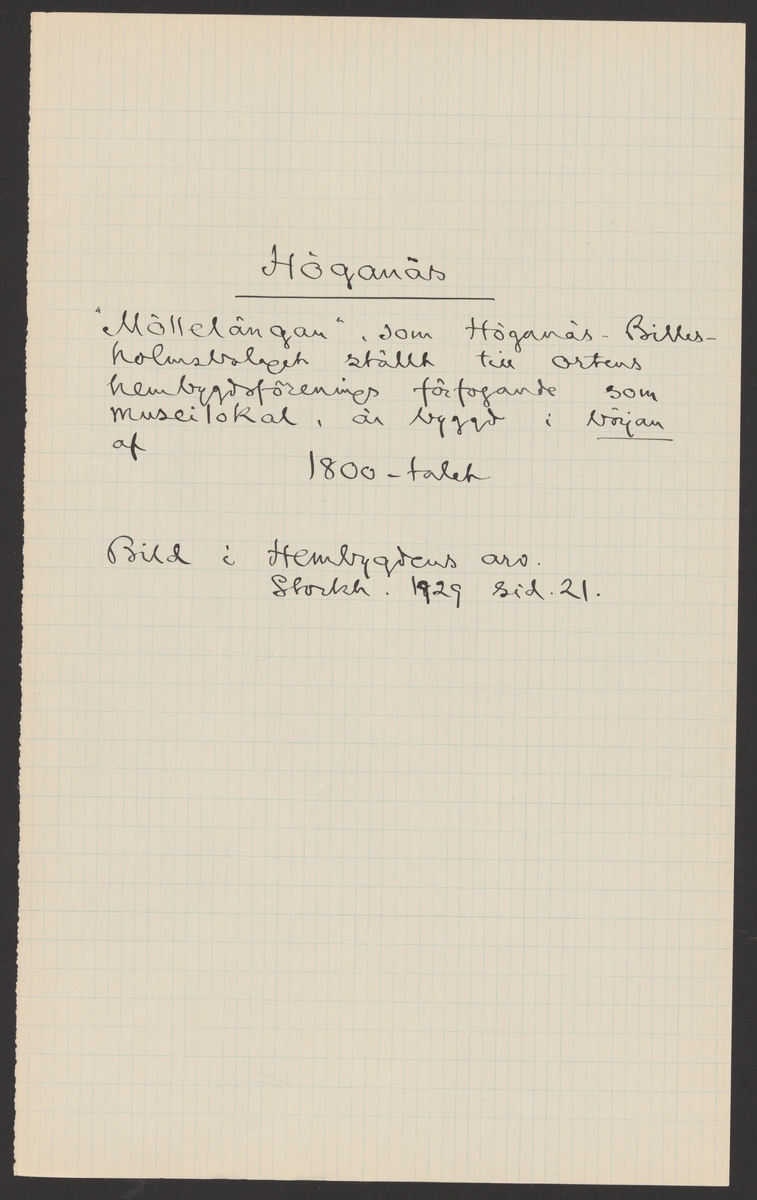 Höganäs
"Möllelängan", som Höganäs-Billes-
holmsbolaget ställt till ortens
hembygdsförenings förfogande som
museilokal, är byggd i början
af
1800-talet
Bild i Hembygdens arv.
Stockh. 1929 sid. 21.